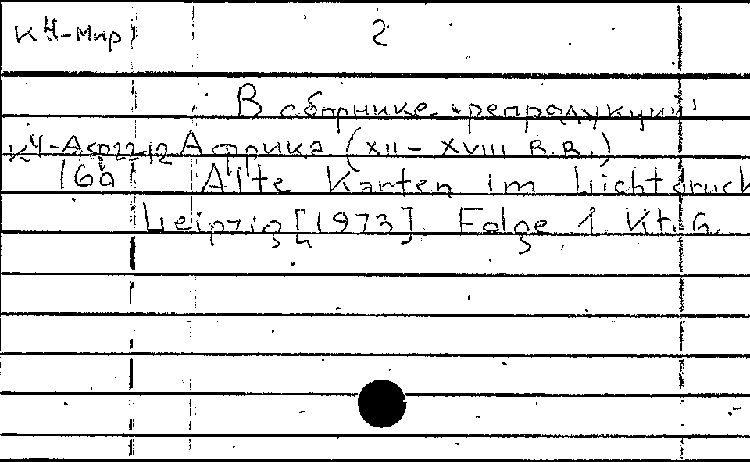 К4-Мир 2
В сборнике репродукций
К4-Афр22-12 Африка (XII - XVIII в.в.)
16а Alte Karten im Lichtdruck
Leipzig [1973]. Folge 1. Kt. 6.